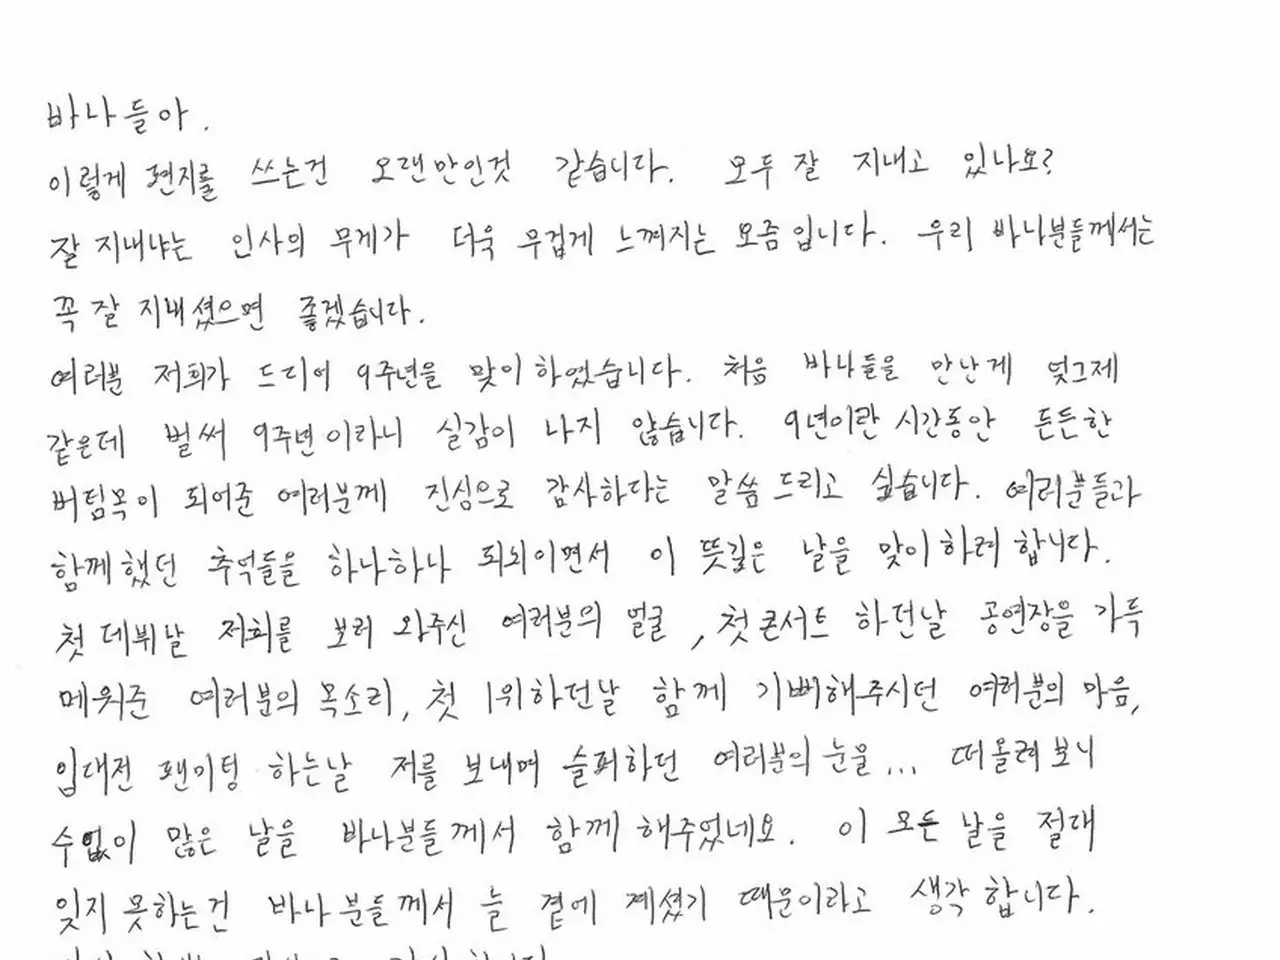 바나들아.
이렇게 편지를 쓰는건 오랜만인것 같습니다. 모두 잘 지내고 있나요?
잘 지내냐는 인사의 무게가 더욱 무겁게 느껴지는 요즘입니다. 우리 바나분들께서는
꼭 잘 지내셨으면 좋겠습니다.
여러분 저희가 드디어 9주년을 맞이하였습니다. 처음 바나들을 만난게 엊그제
같은데 벌써 9주년이라니 실감이 나지 않습니다. 9년이란 시간동안 든든한
버팀목이 되어준 여러분께 진심으로 감사하다는 말씀 드리고 싶습니다. 여러분들과
함께했던 추억들을 하나하나 되뇌이면서 이 뜻깊은 날을 맞이하려 합니다.
첫 데뷔날 저희를 보러 와주신 여러분의 얼굴, 첫 콘서트 하던날 공연장을 가득
메워준 여러분의 목소리, 첫 1위하던날 함께 기뻐해주시던 여러분의 마음,
입대전 팬미팅 하는날 저를 보내며 슬퍼하던 여러분의 눈을... 떠올려보니
수없이 많은 날을 바나분들께서 함께 해주었네요. 이 모든 날을 절대
잊지 못하는건 바나분들께서 늘 곁에 계셨기 때문이라고 생각합니다.